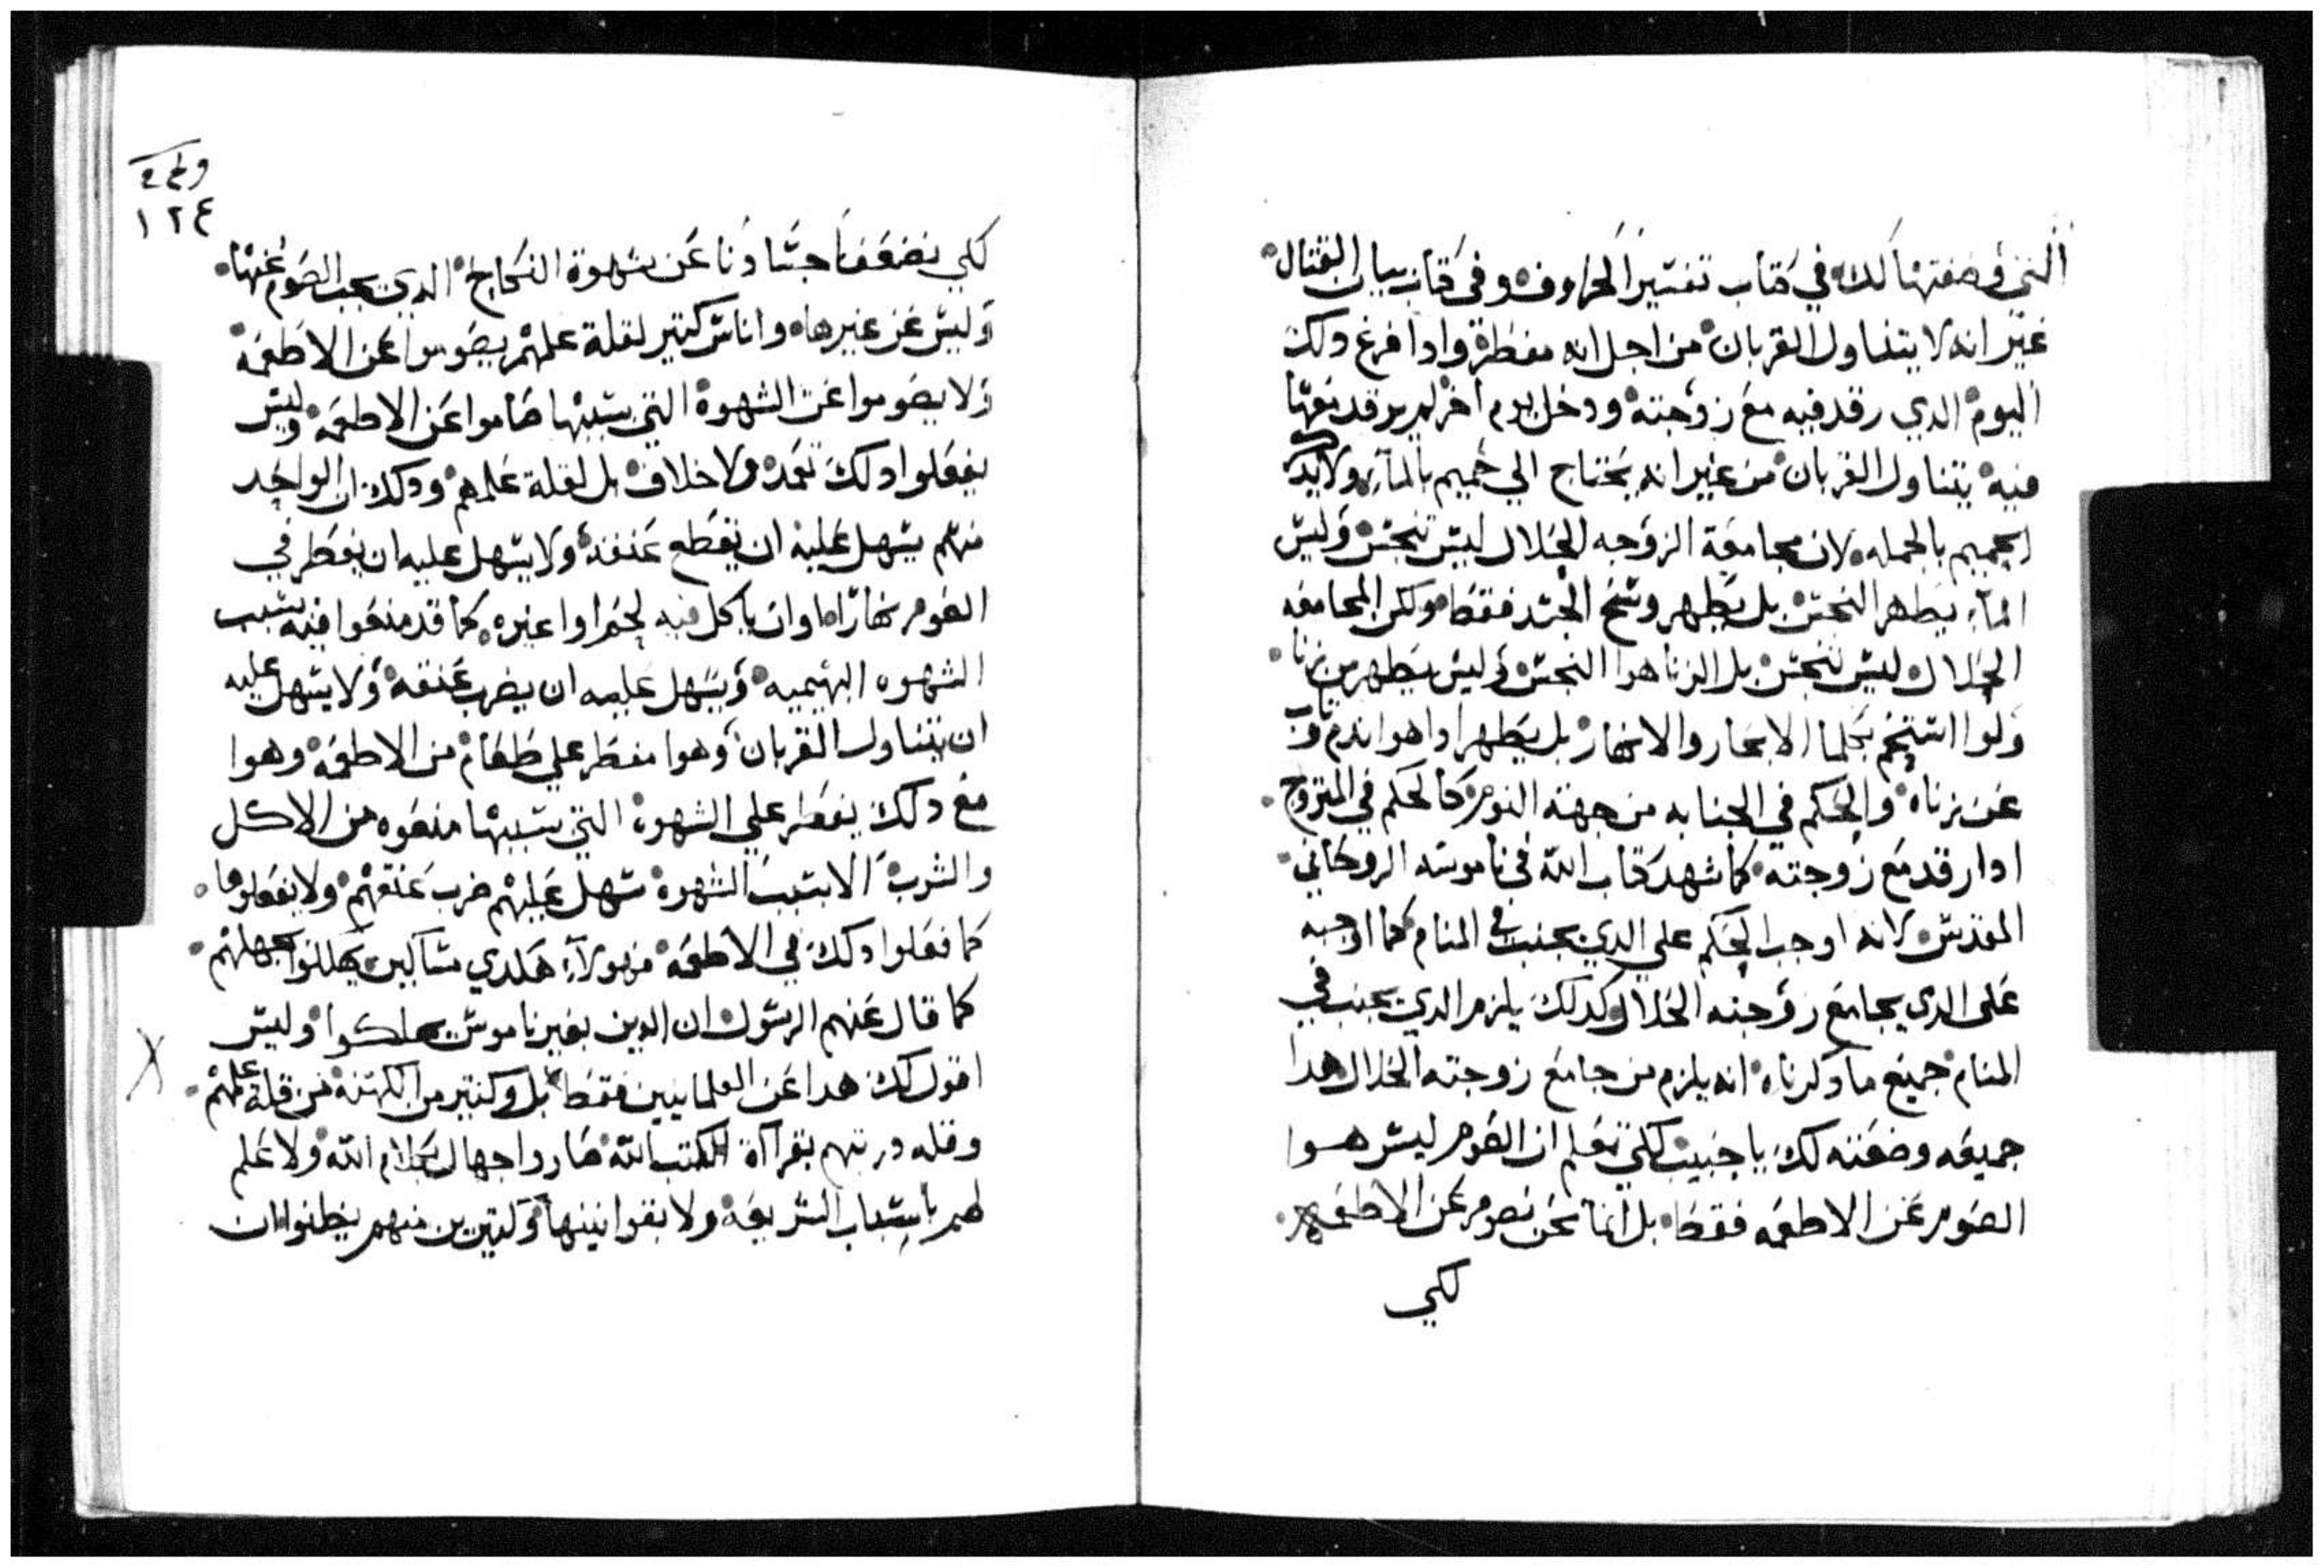 التي وضعتها لك في كتاب تفسير الحروف وفي كتاب بيان القتال
غير انه لا يتناول القربان من اجل انه مفطر وادا فرغ دلك
اليوم الدي رقد فيه مع زوجته ودخل يوم اخر لم يرقد معها
فيه يتناول القربان من غير انه يحتاج الي حميم بالماء ولابد
الحميم بالجمله لان مجامعة الزوجه الحلال ليس نجس وليس
الماء يطهر النجس بل يطهر وسخ الجسد فقط ولكن المجامعه
الحلال ليس نجس بل الزنا هوا النجس وليس يطهر من زنا
ولوا استحم بكلما الابحار والانهار بل يطهر ادا هوا ندم وتاب
عن زناه والحكم في الجنابه من جهة النوم كالحكم في المتزوج
ادا رقد مع زوجته كما شهد كتاب الله في ناموسه الروحاني
المقدس لانه اوجب الحكم علي الدي يجنب في المنام كما اوجبه
على الدى يجامع زوجته الحلال وكدلك يلزم الدي يجنب في
المنام جميع ما دكرناه انه يلزم من جامع زوجته الحلال هدا
جميعه وضعته لك يا حبيب لكي تعلم ان الصوم ليس هوا
الصوم عن الاطعمه فقط بل اننا نحن نصوم عن الاطعمه
لكي
١٢٤
لكي نضعف اجسادنا عن شهوة النكاح الدي يجب الصوم عنها
وليس عن غيرها واناس كتير لقلة علمهم يصوموا عن الاطعمة
ولا يصوموا عن الشهوة التي بسببها صاموا عن الاطعمه وليس
يفعلوا دلك تعمد ولا خلاف بل لقلة علمهم ودلك ان الواحد
منهم يسهل عليه ان يقطع عنقه ولا يسهل عليه ان يفطر في
الصوم نهارًا وان ياكل فيه لحم او غيره كما قد منعوا فيه بسبب
الشهوه البهيميه ويسهل عليه ان يضرب عنقه ولا يسهل عليه
ان يتناول القربان وهوا مفطر علي طعام من الاطعمه وهوا
مع دلك يفطر علي الشهوة التي بسببها منعوه من الاكل
والشرب الا بسبب الشهوة سهل عليهم ضرب عنقهم ولا يفعلوها
كما فعلوا دلك في الاطعمه فهولاء هكدي مساكين يهلكوا بجهلهم
كما قال عنهم الرسول ان الدين بغير ناموس يهلكوا وليس
اقول لك هدا عن العلمانيين فقط بل وكتير من الكهنة من قلة علمهم
وقله دربتهم بقراآة الكتب الله صاروا جهال بكلام الله ولا علم
لهم باسباب الشريعة ولا بقوانينها وكتيرين منهم يظنوا ان